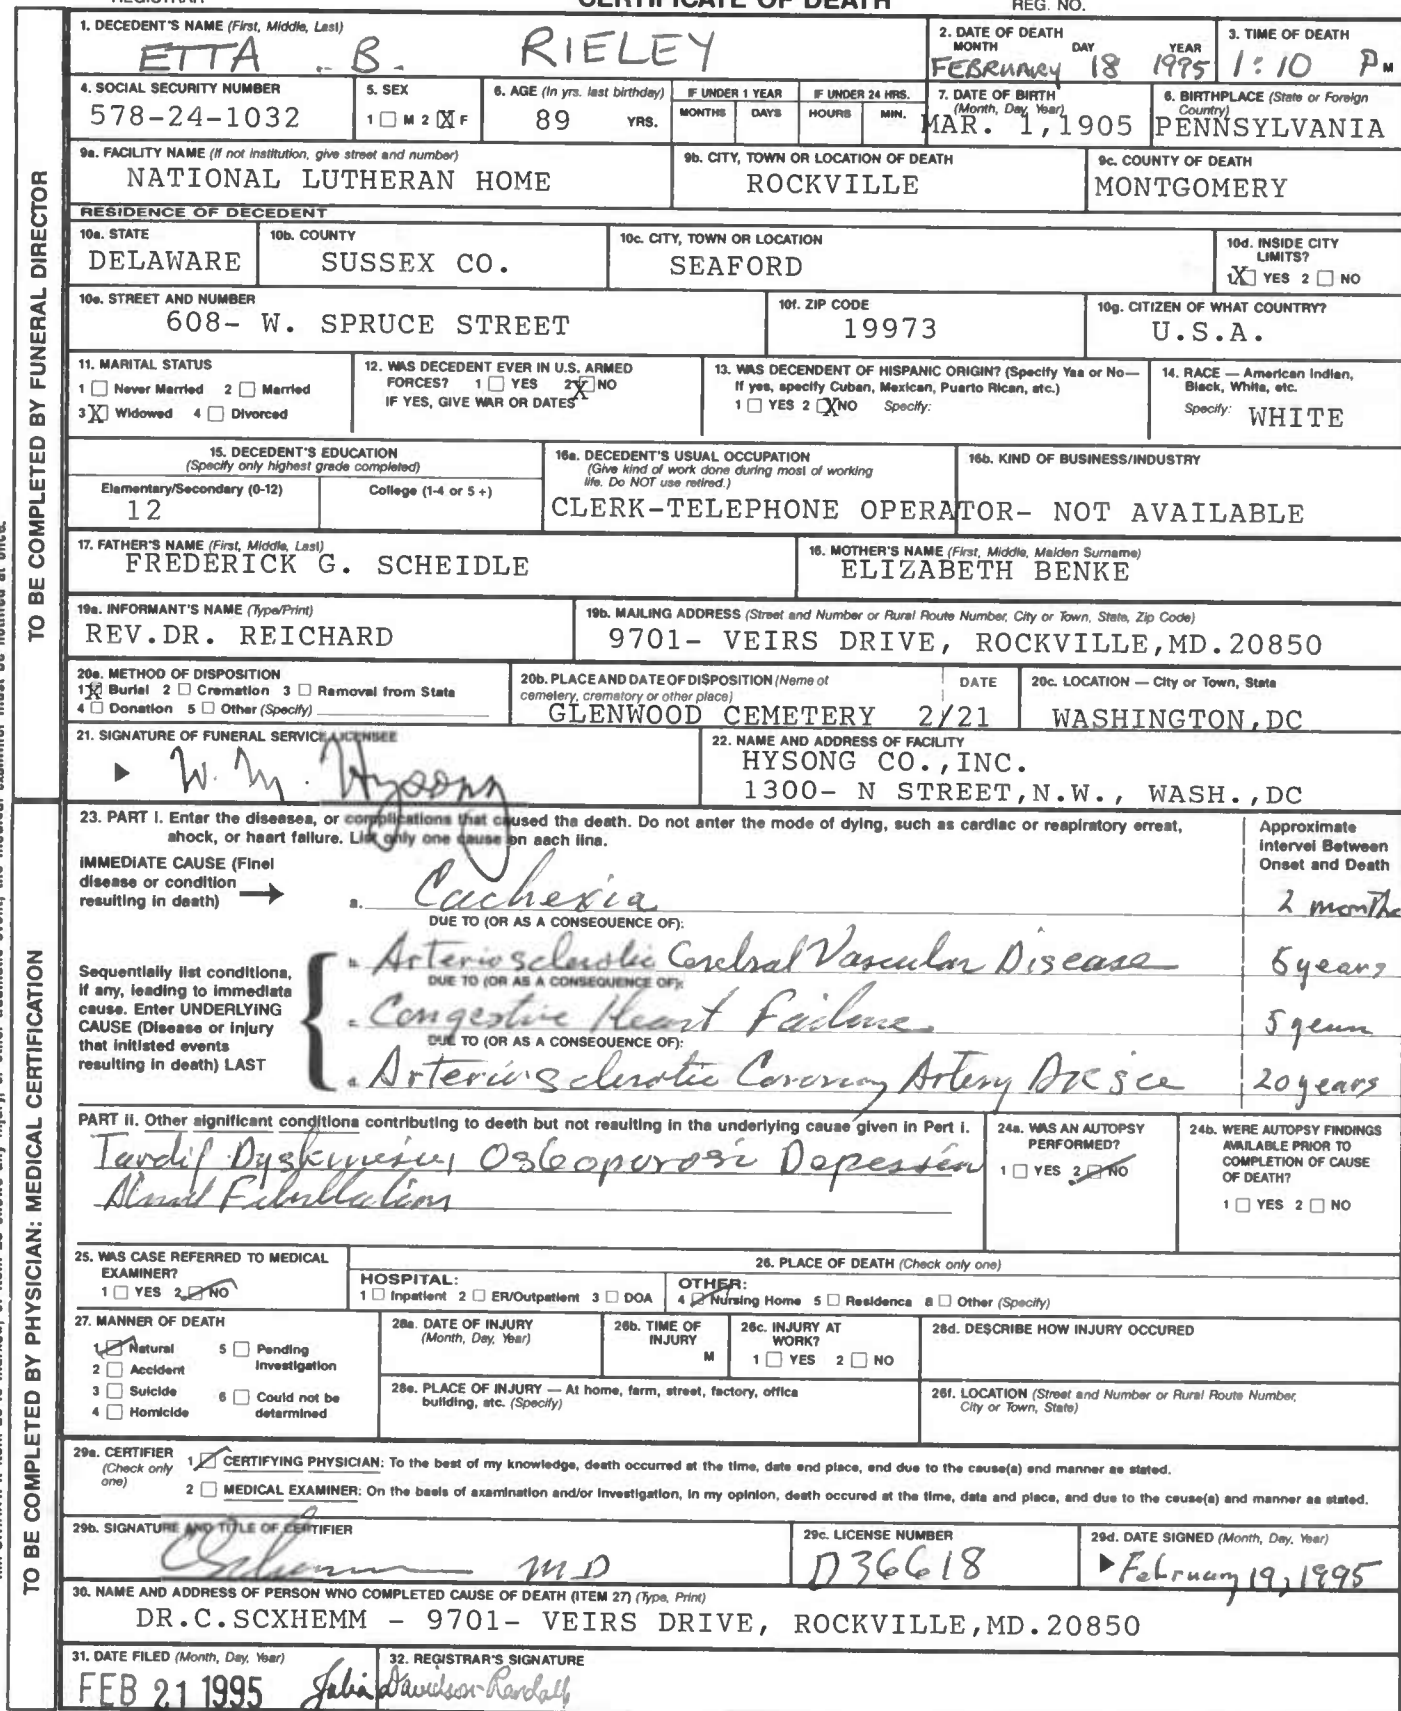 CERTIFICATE OF DEATH
REG. NO.
1. DECEDENT'S NAME (First, Middle, Last)
ETTA B. RIELEY
2. DATE OF DEATH
MONTH DAY YEAR
FEBRUARY 18 1995
3. TIME OF DEATH
1:10 P M
4. SOCIAL SECURITY NUMBER
578-24-1032
5. SEX
1 ☐ M 2 ☒ F
6. AGE (In yrs. last birthday)
89 YRS.
IF UNDER 1 YEAR
MONTHS DAYS
IF UNDER 24 HRS.
HOURS MIN.
7. DATE OF BIRTH
(Month, Day, Year)
MAR. 1,1905
6. BIRTHPLACE (State or Foreign
Country)
PENNSYLVANIA
9a. FACILITY NAME (If not institution, give street and number)
NATIONAL LUTHERAN HOME
9b. CITY, TOWN OR LOCATION OF DEATH
ROCKVILLE
9c. COUNTY OF DEATH
MONTGOMERY
RESIDENCE OF DECEDENT
10a. STATE
DELAWARE
10b. COUNTY
SUSSEX CO.
10c. CITY, TOWN OR LOCATION
SEAFORD
10d. INSIDE CITY
LIMITS?
1 ☒ YES 2 ☐ NO
10e. STREET AND NUMBER
608- W. SPRUCE STREET
10f. ZIP CODE
19973
10g. CITIZEN OF WHAT COUNTRY?
U.S.A.
11. MARITAL STATUS
1 ☐ Never Married 2 ☐ Married
3 ☒ Widowed 4 ☐ Divorced
12. WAS DECEDENT EVER IN U.S. ARMED
FORCES? 1 ☐ YES 2 ☒ NO
IF YES, GIVE WAR OR DATES
13. WAS DECENDENT OF HISPANIC ORIGIN? (Specify Yes or No—
If yes, specify Cuban, Mexican, Puerto Rican, etc.)
1 ☐ YES 2 ☒ NO Specify:
14. RACE — American Indian,
Black, White, etc.
Specify: WHITE
15. DECEDENT'S EDUCATION
(Specify only highest grade completed)
Elementary/Secondary (0-12)
12
College (1-4 or 5 +)
16a. DECEDENT'S USUAL OCCUPATION
(Give kind of work done during most of working
life. Do NOT use retired.)
16b. KIND OF BUSINESS/INDUSTRY
CLERK-TELEPHONE OPERATOR- NOT AVAILABLE
17. FATHER'S NAME (First, Middle, Last)
FREDERICK G. SCHEIDLE
16. MOTHER'S NAME (First, Middle, Maiden Surname)
ELIZABETH BENKE
19a. INFORMANT'S NAME (Type/Print)
REV.DR. REICHARD
19b. MAILING ADDRESS (Street and Number or Rural Route Number, City or Town, State, Zip Code)
9701- VEIRS DRIVE, ROCKVILLE,MD.20850
20a. METHOD OF DISPOSITION
1 ☒ Burial 2 ☐ Cremation 3 ☐ Removal from State
4 ☐ Donation 5 ☐ Other (Specify)
20b. PLACE AND DATE OF DISPOSITION (Name of
cemetery, crematory or other place)
DATE
GLENWOOD CEMETERY 2/21
20c. LOCATION — City or Town, State
WASHINGTON,DC
21. SIGNATURE OF FUNERAL SERVICE LICENSEE
W. M. Hysong
22. NAME AND ADDRESS OF FACILITY
HYSONG CO.,INC.
1300- N STREET,N.W., WASH.,DC
TO BE COMPLETED BY FUNERAL DIRECTOR
23. PART I. Enter the diseases, or complications that caused the death. Do not enter the mode of dying, such as cardiac or respiratory arrest,
shock, or heart failure. List only one cause on each line.
Approximate
Interval Between
Onset and Death
IMMEDIATE CAUSE (Final
disease or condition
resulting in death)
a. Cachexia 2 months
DUE TO (OR AS A CONSEQUENCE OF):
Sequentially list conditions,
if any, leading to immediate
cause. Enter UNDERLYING
CAUSE (Disease or injury
that initiated events
resulting in death) LAST
Arteriosclerotic Cerebral Vascular Disease years
DUE TO (OR AS A CONSEQUENCE OF):
Congestive Heart Failure 5 years
DUE TO (OR AS A CONSEQUENCE OF):
Arteriosclerotic Coronary Artery 20 years
PART II. Other significant conditions contributing to death but not resulting in the underlying cause given in Part I.
Tardif Dyskinesia, Osteoporosi Depession
Fibrillation
24a. WAS AN AUTOPSY
PERFORMED?
1 ☐ YES 2 ☑ NO
24b. WERE AUTOPSY FINDINGS
AVAILABLE PRIOR TO
COMPLETION OF CAUSE
OF DEATH?
1 ☐ YES 2 ☐ NO
25. WAS CASE REFERRED TO MEDICAL
EXAMINER?
1 ☐ YES 2 ☑ NO
26. PLACE OF DEATH (Check only one)
HOSPITAL:
1 ☐ Inpatient 2 ☐ ER/Outpatient 3 ☐ DOA
OTHER:
4 ☑ Nursing Home 5 ☐ Residence 8 ☐ Other (Specify)
27. MANNER OF DEATH
1 ☑ Natural 5 ☐ Pending
2 ☐ Accident Investigation
3 ☐ Suicide 6 ☐ Could not be
4 ☐ Homicide determined
28a. DATE OF INJURY
(Month, Day, Year)
26b. TIME OF
INJURY
M
26c. INJURY AT
WORK?
1 ☐ YES 2 ☐ NO
28d. DESCRIBE HOW INJURY OCCURED
28e. PLACE OF INJURY — At home, farm, street, factory, office
building, etc. (Specify)
26f. LOCATION (Street and Number or Rural Route Number,
City or Town, State)
29a. CERTIFIER
(Check only
one)
1 ☑ CERTIFYING PHYSICIAN: To the best of my knowledge, death occurred at the time, date end place, end due to the cause(a) end manner as stated.
2 ☐ MEDICAL EXAMINER: On the basis of examination and/or investigation, in my opinion, death occured at the time, data and place, and due to the ceuse(a) and manner aa stated.
29b. SIGNATURE AND TITLE OF CERTIFIER
MD
29c. LICENSE NUMBER
D36618
29d. DATE SIGNED (Month, Day, Year)
February 19, 1995
30. NAME AND ADDRESS OF PERSON WNO COMPLETED CAUSE OF DEATH (ITEM 27) (Type, Print)
DR.C.SCXHEMM - 9701- VEIRS DRIVE, ROCKVILLE,MD.20850
31. DATE FILED (Month, Day, Year)
FEB 21 1995
32. REGISTRAR'S SIGNATURE
Julia Davidson-Randall
TO BE COMPLETED BY PHYSICIAN: MEDICAL CERTIFICATION